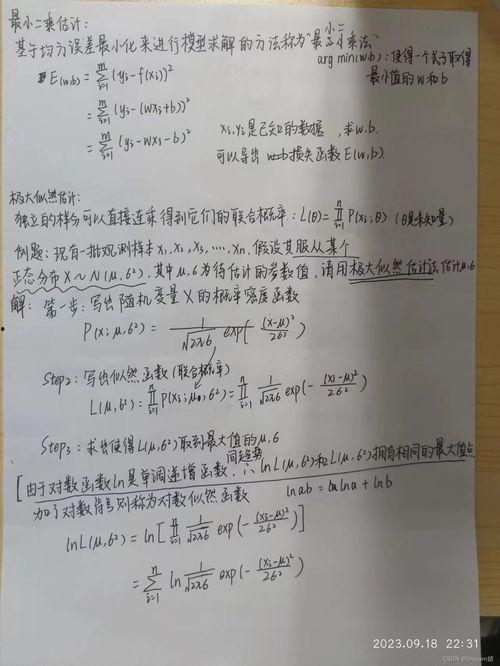 最小二乘估计:
基于均方误差最小化来进行模型求解的方法称为"最小二乘法"
arg min(w,b): 使得一个式子取得
最小值的w和b
E(w,b) = Σ_{i=1}^{m} (yᵢ - f(xᵢ))²
= Σ_{i=1}^{m} (yᵢ - (wxᵢ + b))²
= Σ_{i=1}^{m} (yᵢ - wxᵢ - b)²
xᵢ, yᵢ是已知的数据, 求w,b.
可以导出 损失函数E(w,b).
极大似然估计:
独立的样分可以直接连乘得到它们的联合概率: L(θ) = Π_{i=1}^{n} P(xᵢ;θ) (θ是未知量)
例题: 现有一批观测样本x₁, x₂, x₃, ...., xₙ, 假设其服从某个
正态分布X~N(μ, б²), 其中μ,б为待估计的参数值, 请用极大似然估计法估计μ,б
解: 第一步: 写出随机变量X的概率密度函数
P(x; μ, б²) = 1/(√2π б) exp(-(x-μ)²/2б²)
Step2: 写出似然函数(联合概率)
L(μ, б²) = Π_{i=1}^{n} P(xᵢ; μ, б²) = Π_{i=1}^{n} 1/(√2π б) exp(-(xᵢ-μ)²/2б²)
Step3: 求出使得L(μ, б²)取到最大值的μ, б
[由于对数函数ln是单调递增函数, ∴ ln L(μ, б²)和L(μ, б²)拥有相同的最大值点
加了对数信号别称为对数似然函数 ln ab = ln a + ln b
ln L(μ, б²) = ln [Π_{i=1}^{n} 1/(√2π б) exp(-(xᵢ-μ)²/2б²)]
= Σ_{i=1}^{n} ln 1/(√2π б) exp(-(xᵢ-μ)²/2б²)
2023.09.18 22:31